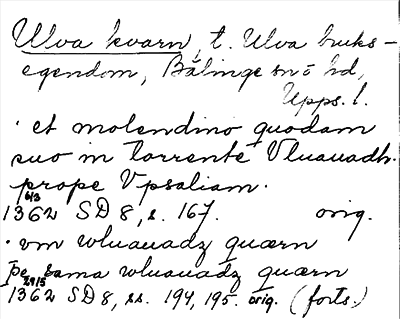 Ulva kvarn, t. Ulva bruks-
egendom, Bälinge sn o hd,
Upps. l.
· et molendino quodam
suo in torrente Vluauadh
prope Vpsaliam.
6/3
1362 SD 8, s. 167. orig.
· vm wluauadz quærn
þe sama wluauadz quærn
29/5
1362 SD 8, ss. 194, 195. orig. (forts.)